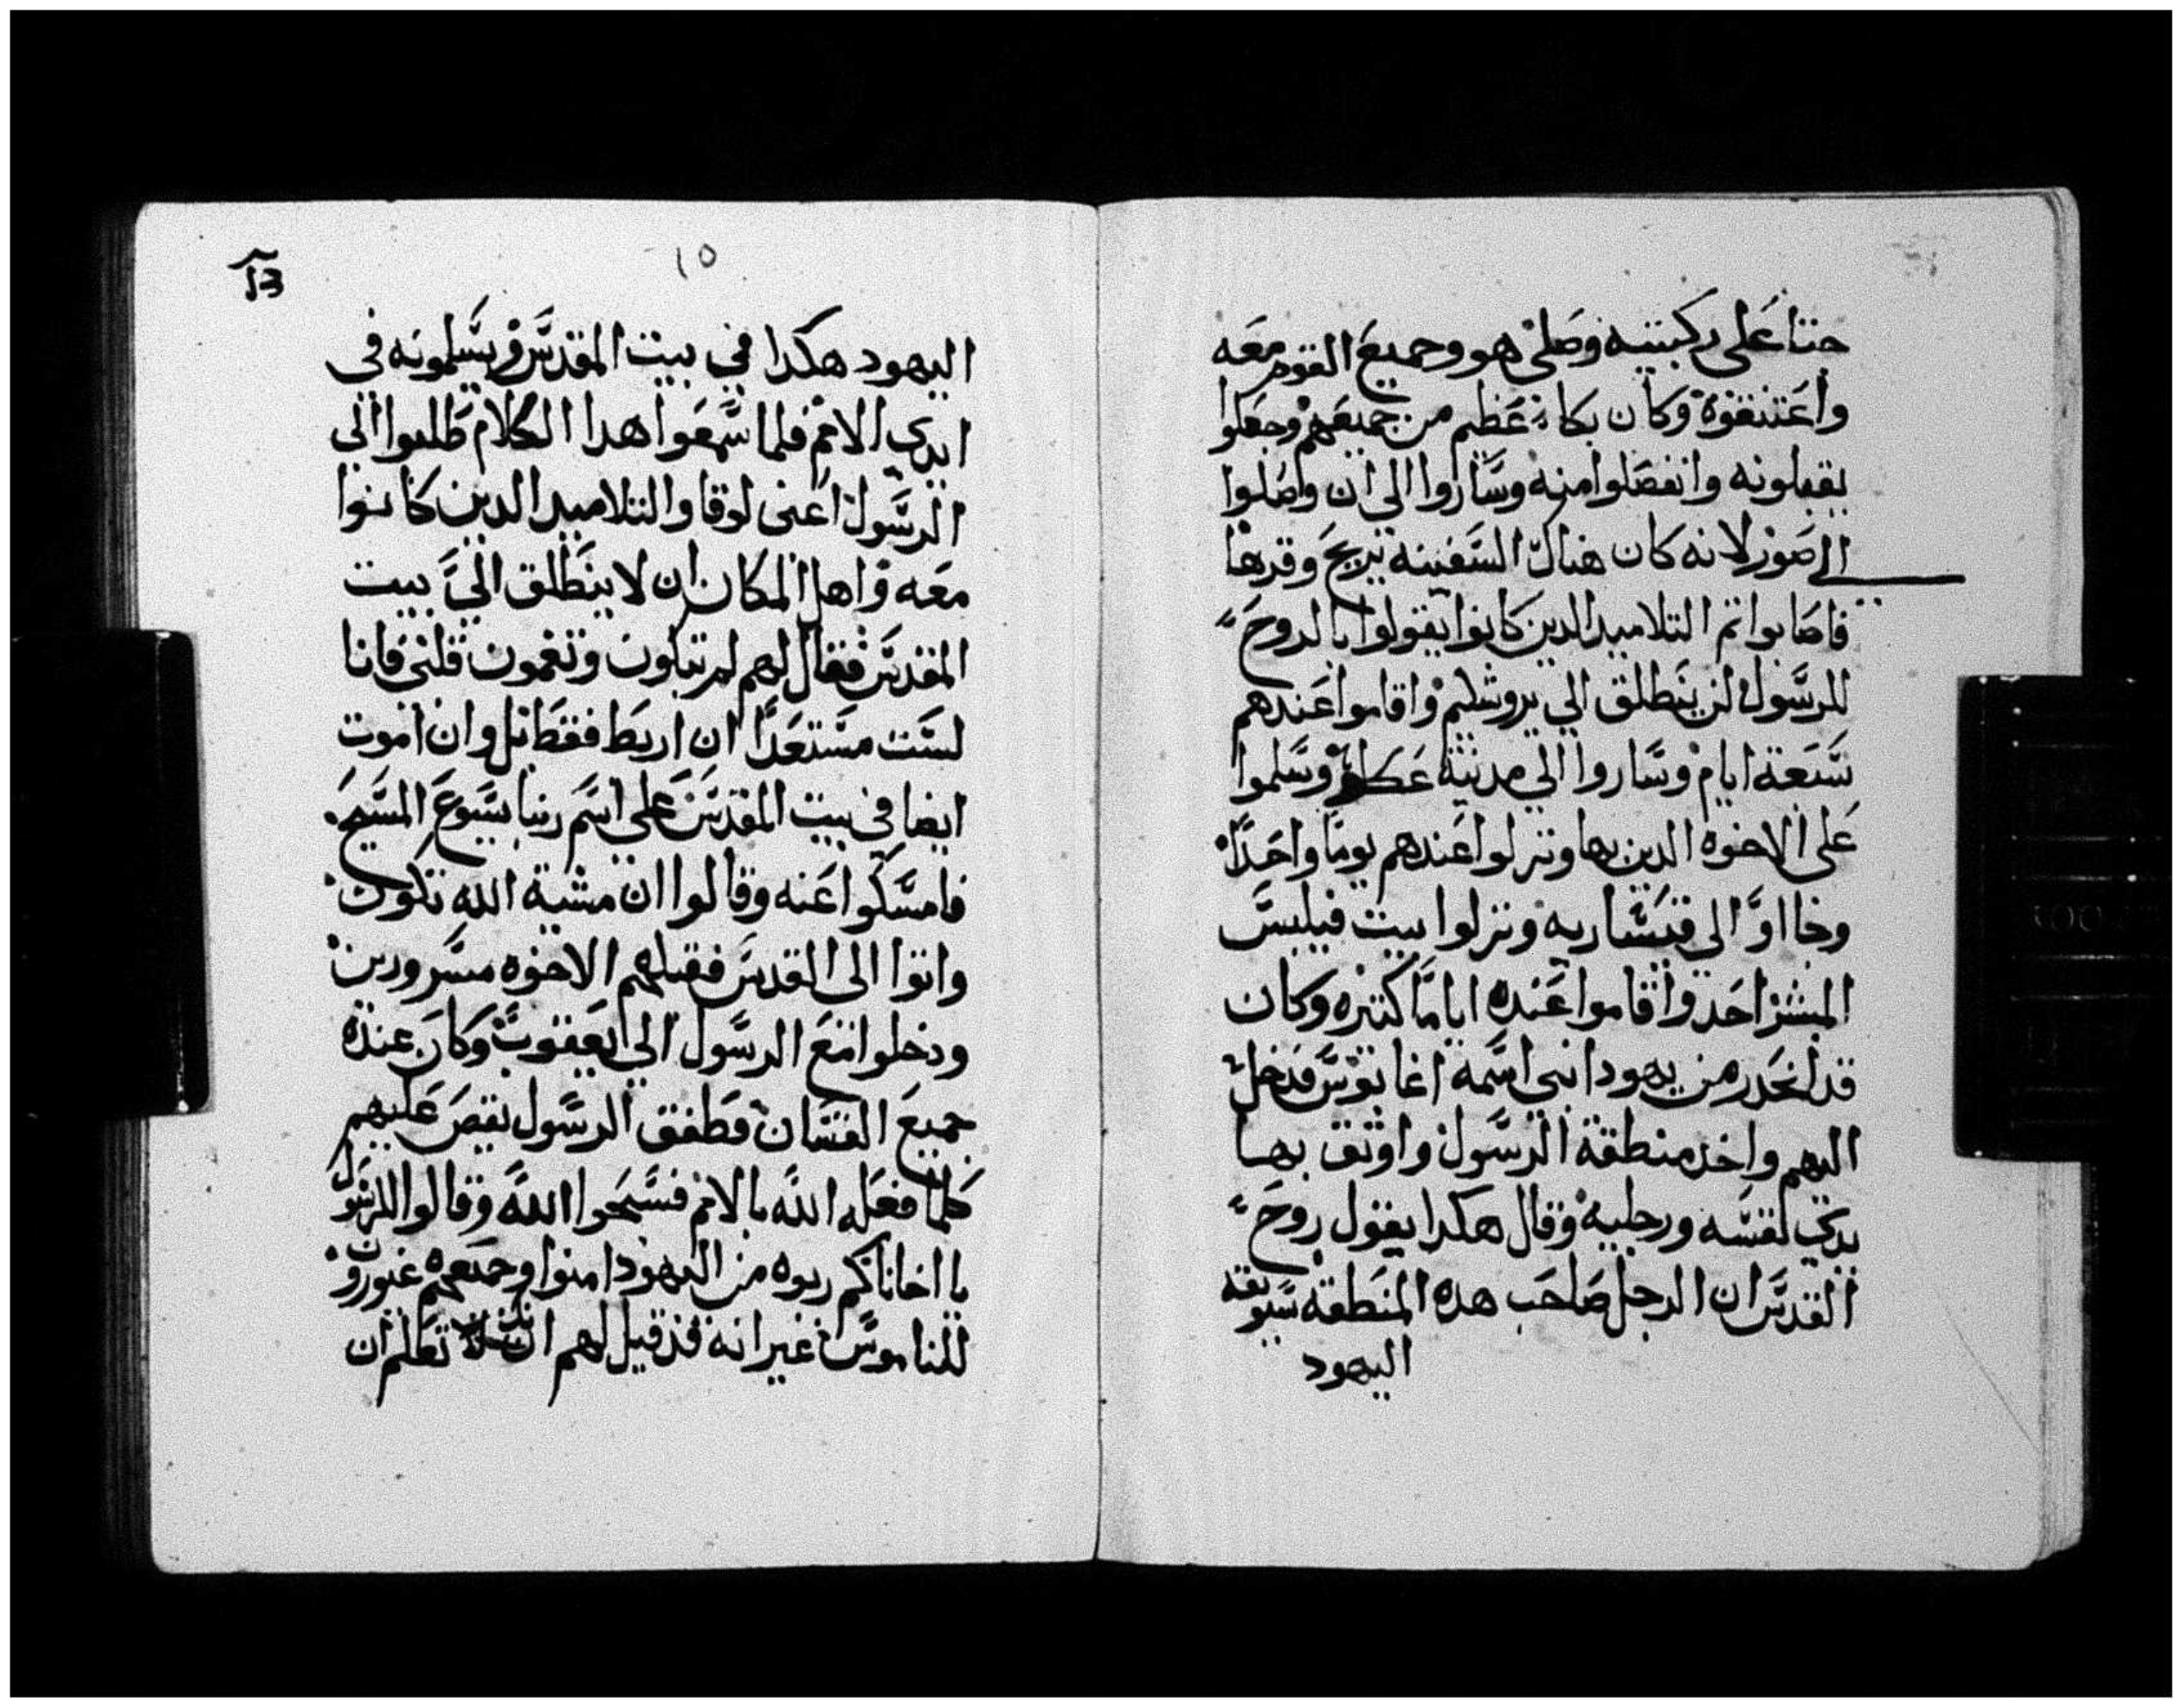 جتا على ركبتيه وصلى هو وجميع القوم معه
واعتنقوه وكان بكاء عظيم من جميعهم وجعلوا
يقبلونه وانفصلوا منه وساروا الي ان وصلوا
الي صور لانه كان هناك السفينه تريح وقرها
فاصابوا تم التلاميد الدين كانوا يقولوا بالروح
للرسول لن ينطلق الي يروشليم واقاموا عندهم
سبعة ايام وساروا الي مدينة عكا وسلموا
على الاخوه الدين بها ونزلوا عندهم يوما واحدا
وجااوا الى قيساريه ونزلوا بيت فيلبس
المبشر احد واقاموا عنده اياما كتيره وكان
قد انحدر من يهودا نبي اسمه اغابوس فدخل
اليهم واخد منطقة الرسول واوتق بها
يدي نفسه ورجليه وقال هكدا يقول روح
القدس ان الرجل صاحب هده المنطقه سيوتقه
اليهود
١٥
اليهود هكدا في بيت المقدس ويسلمونه في
ايدي الامم فلما سمعوا هدا الكلام طلبوا الي
الرسول اعنى لوقا والتلاميد الدين كانوا
معه واهل المكان ان لا ينطلق الي بيت
المقدس فقال لهم لم تبكون وتغمون قلبي فانا
لست مستعدا ان اربط فقط بل وان اموت
ايضا في بيت المقدس على اسم ربنا يسوع المسيح
فامسكوا عنه وقالوا ان مشية الله تكون
واتوا الى القدس فقبلهم الاخوه مسرورين
ودخلوا مع الرسول الي يعقوب وكان عنده
جميع القسان فطفق الرسول يقص عليهم
كلما فعله الله بالامم فسبحوا الله وقالوا للرسول
يا اخانا كم ربوه من اليهود امنوا وجميعهم غيورون
للناموس غير انه قد قيل لهم انك تعلم ان